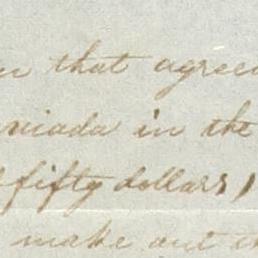 that agreed
in the
fifty dollars,
make out